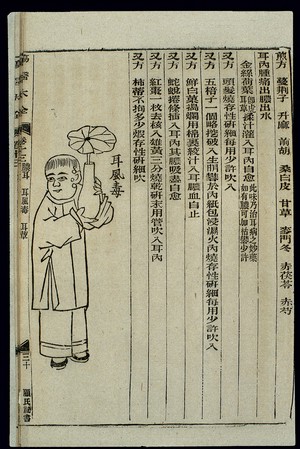 煎方 蔓荊子 升麻 前胡 桑白皮 甘草 麥門冬 赤茯苓 赤芍
耳內腫痛出膿出水
金絲荷葉 即虎耳草 揉汁灌入耳內自愈 此味乃治耳病之妙藥 如有膿可加枯礬少許
又方 頭髮燒存性研細每用少許吹入
又方 五棓子一個略挖破入生明礬於內紙包浸濕火內燒存性研細每用少許吹入
又方 鮮白菓搗爛用棉絞汁入耳膿血自止
又方 蛇蛻捲條插入耳內其膿吸盡自愈
又方 紅棗一枚去核入雄黃三分燒乾研末用管吹入耳內
又方 柿蒂不拘多少煅存性研細吹
耳風毒
瘍醫大全
耳風毒
三十
顧氏祕書